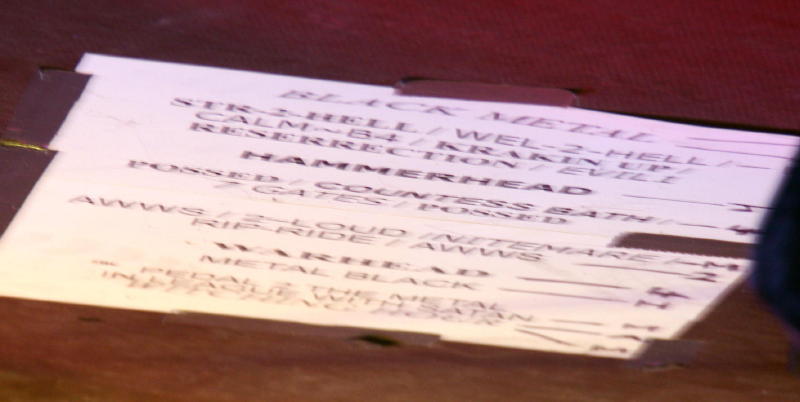 BLACK METAL
STR-2-HELL / WEL-2-HELL /
CALM-B4 / KRAKIN UP /
RESERRECTION / EVILL
HAMMERHEAD
POSSED / COUNTESS BATH /
7 GATES / POSSED
AWWS / 2-LOUD / NITEMARE
RIP-RIDE / AWWS
WARHEAD
METAL BLACK
PEDAL 2 THE METAL
IN LEAGUE WITH SATAN